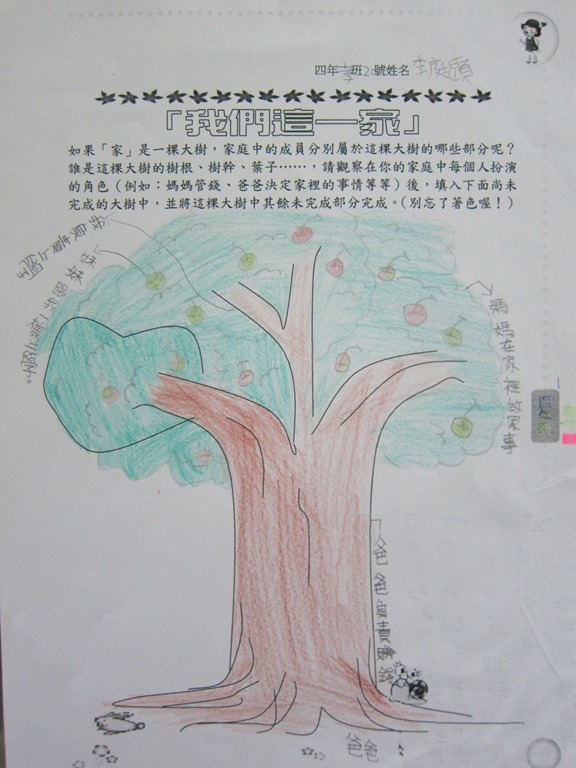 四年孝班20號姓名 李庭頤
「我們這一家」
如果「家」是一棵大樹，家庭中的成員分別屬於這棵大樹的哪些部分呢？
誰是這棵大樹的樹根、樹幹、葉子⋯⋯，請觀察在你的家庭中每個人扮演
的角色（例如：媽媽管錢、爸爸決定家裡的事情等等）後，填入下面尚未
完成的大樹中，並將這棵大樹中其餘未完成部分完成。（別忘了著色喔！）
我負責上國小
媽媽在家裡做家事
爸爸負責賺錢
爸爸